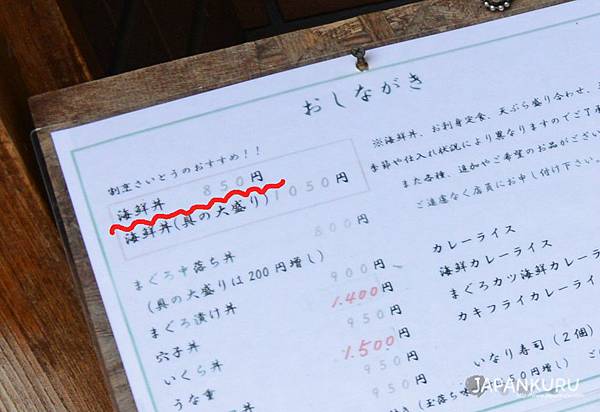 おしながき
割烹さいとうのおすすめ！！
海鮮丼 850円
海鮮丼(具の大盛り) 1050円
まぐろ中落ち丼 800円
(具の大盛りは200円増し)
まぐろ漬け丼 900円
穴子丼 1.400円
いくら丼 950円
うな重 1.500円
950円
950円
※海鮮丼、お刺身定食、天ぷら盛り合わせ、
季節や仕入れ状況により異なりますのでご了承
また各種、追加やご希望のお品がござい
ご遠慮なく店員にお申し付け下さい。
カレーライス
海鮮カレーライス
まぐろカツ海鮮カレーラ
カキフライカレーライ
いなり寿司(2個)
JAPANKURU